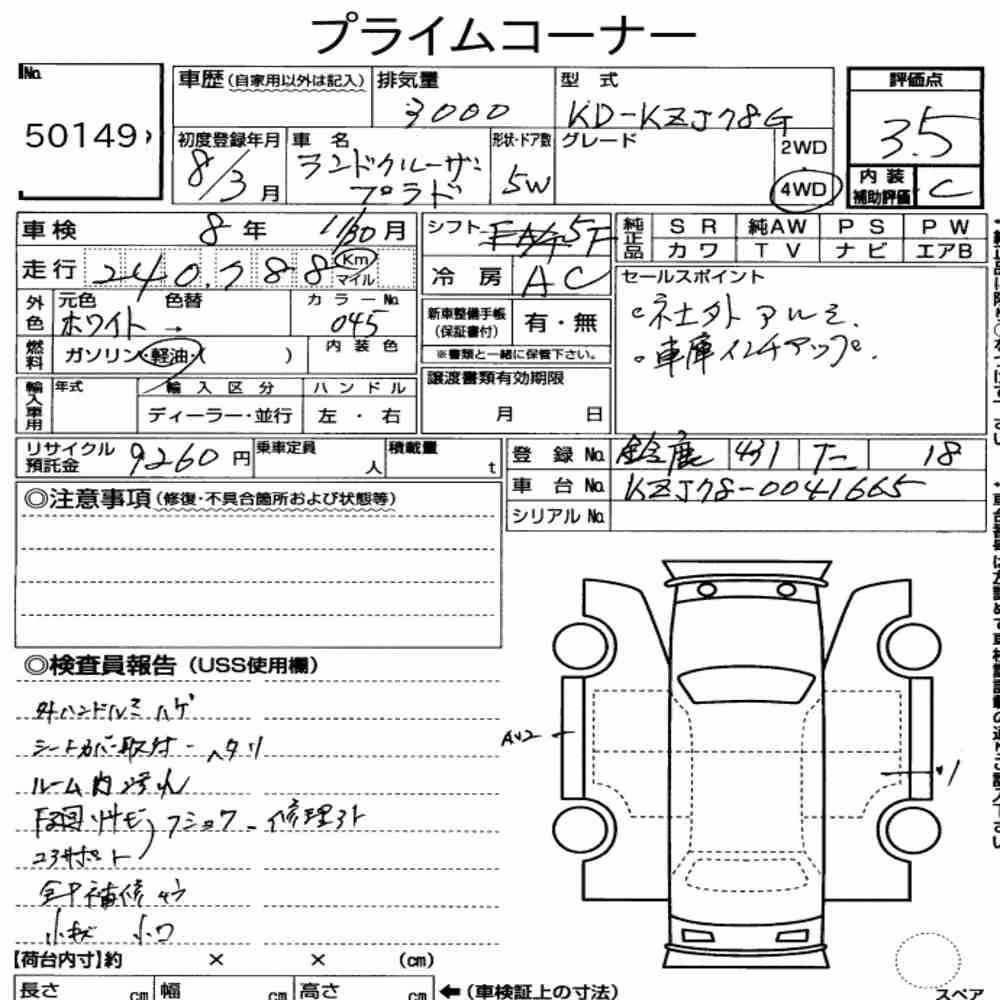 プライムコーナー
No.
50149
車歴(自家用以外は記入)
排気量
3000
型 式
KD-KZJ78G
評価点
3.5
初度登録年月
8/3月
車 名
ランドクルーザー
プラド
形状・ドア数
5W
グレード
2WD
4WD
内 装
補助評価
C
車検
8年
11/30月
シフト
FA/F 5F
純正品
SR 純AW PS PW
カワ TV ナビ エアB
走行
240,788
Km
マイル
冷 房
AC
セールスポイント
◦社外アルミ.
◦車庫インチアップ.
外色
元色
ホワイト →
色替
カラーNo.
045
新車整備手帳
(保証書付)
有・無
※書類と一緒に保管下さい。
燃料
ガソリン・軽油・( )
内 装 色
輸入車用
年式
輸 入 区 分
ハ ン ド ル
ディーラー・並行
左 ・ 右
譲渡書類有効期限
月 日
リサイクル
預託金
9260円
乗車定員
人
積載量
t
登 録 No.
鈴鹿 431 た 18
車 台 No.
KZJ78-0041665
シリアル No.
◎注意事項(修復・不具合箇所および状態等)
◎検査員報告(USS使用欄)
外ハンドルミハゲ
シートカバー取付-ヘタリ
ルーム内汚れ
コアサポート
修理跡
小キズ 小凹
【荷台内寸】約 × × (cm)
長さ cm 幅 cm 高さ cm
←(車検証上の寸法)
スペア